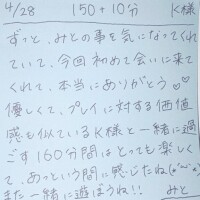 4/28 150+10分 K様
ずっと、みとの事を気になってくれ
ていて、今回初めて会いに来て
くれて、本当にありがとう♡♡
優しくて、プレイに対する価値
感も似ているK様と一緒に過
ごす160分間はとっても楽しく
て、あっという間に感じたね(*˘︶˘*)
また一緒に遊ぼうね!! みと